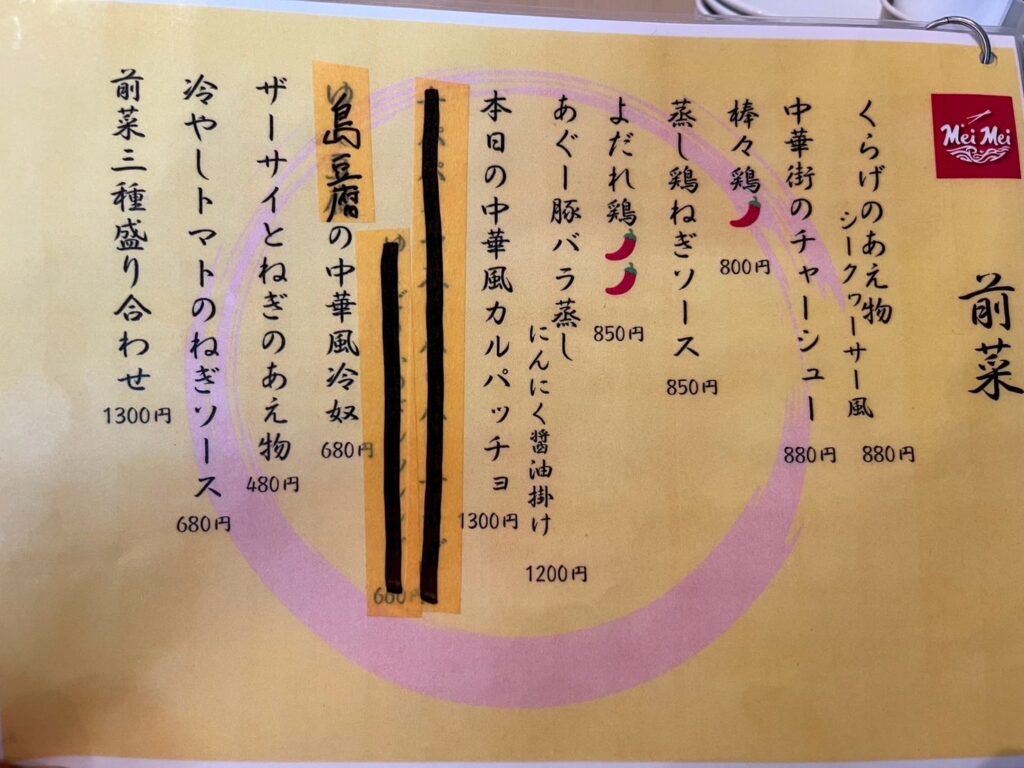 Mei Mei
前菜
くらげのあえ物
シークヮーサー風
880円
中華街のチャーシュー
880円
棒々鶏
800円
蒸し鶏ねぎソース
850円
よだれ鶏
850円
あぐー豚バラ蒸し
にんにく醤油掛け
1200円
本日の中華風カルパッチョ
1300円
島豆腐の中華風冷奴
680円
ザーサイとねぎのあえ物
480円
冷やしトマトのねぎソース
680円
前菜三種盛り合わせ
1300円